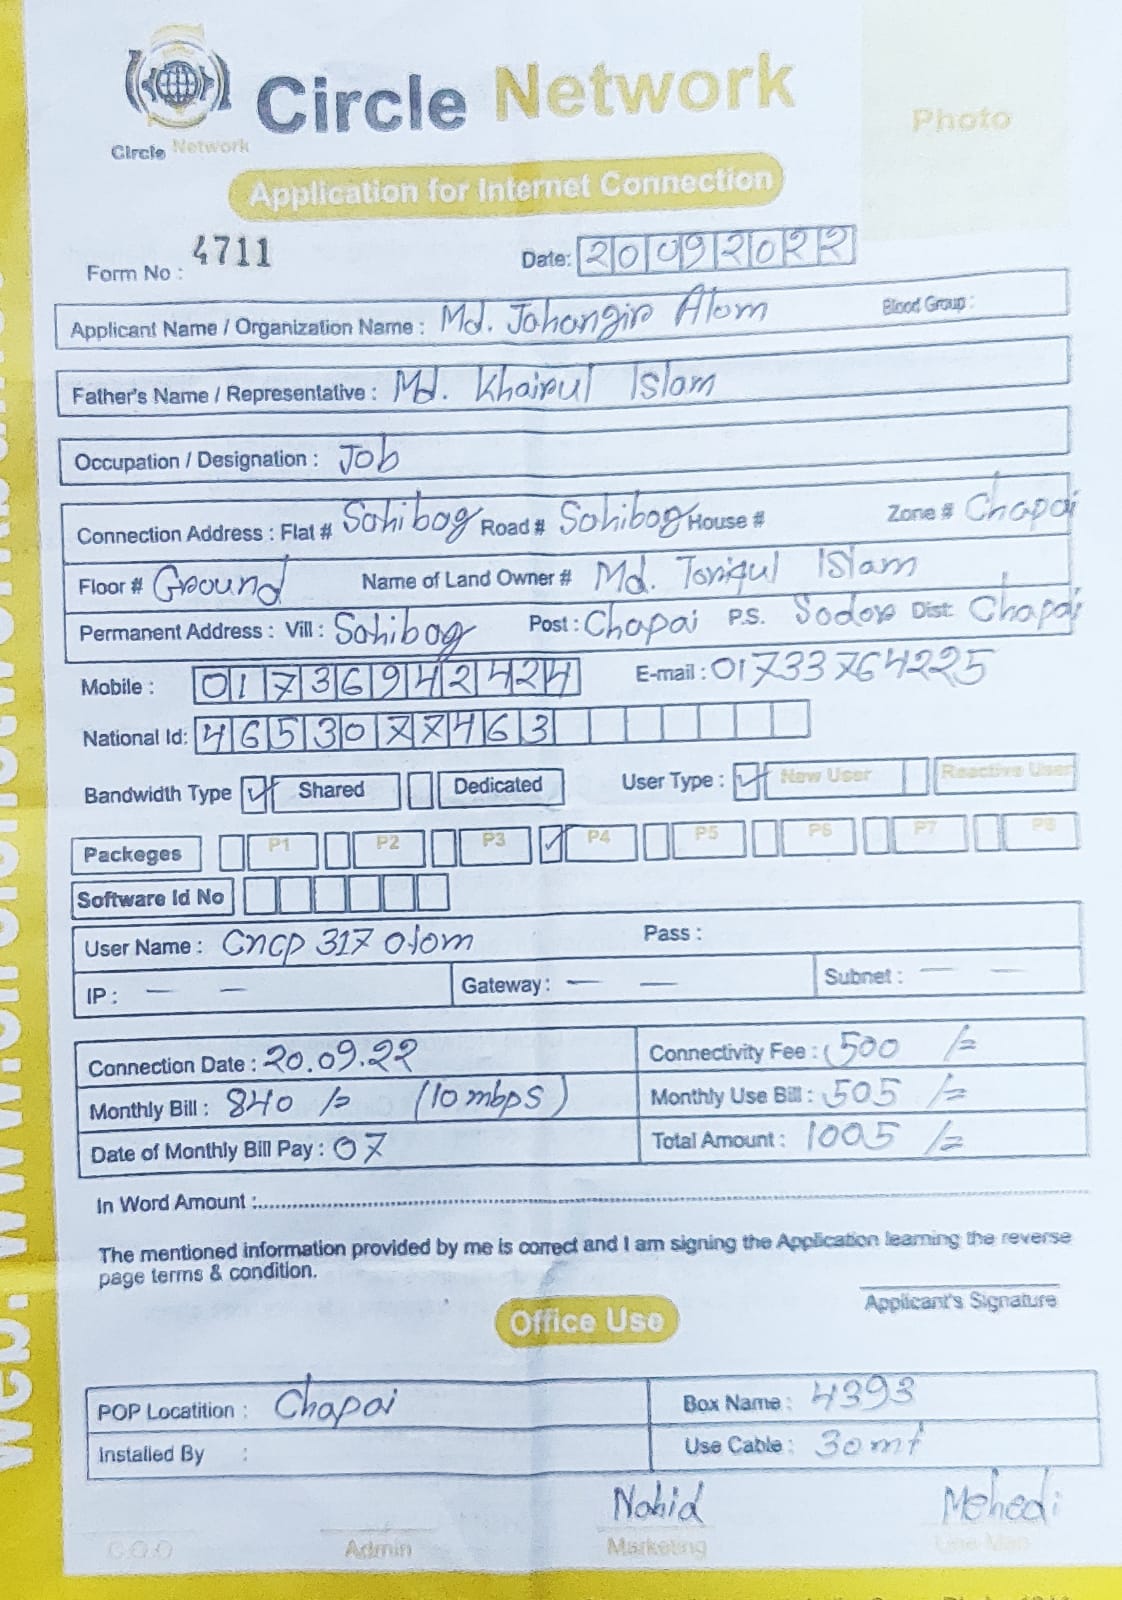 Circle Network
Circle Network
Photo
Application for Internet Connection
Form No : 4711
Date: 20092022
Applicant Name / Organization Name : Md. Jahangir Alam Blood Group :
Father's Name / Representative : Md. Khairul Islam
Occupation / Designation : Job
Connection Address : Flat # Sahibag Road # Sahibag House # Zone # Chapai
Floor # Ground Name of Land Owner # Md. Toriqul Islam
Permanent Address : Vill : Sahibag Post : Chapai P.S. Sador Dist: Chapai
Mobile : 01736942424 E-mail : 01733764225
National Id: 4653077463
Bandwidth Type Shared Dedicated User Type : New User Reactive User
Packeges P1 P2 P3 P4 P5 P6 P7 P8
Software Id No
User Name : Cncp 317 alam Pass :
IP : — — Gateway : — — Subnet : — —
Connection Date : 20.09.22 Connectivity Fee : 500 /=
Monthly Bill : 840 /= (10 mbps) Monthly Use Bill : 505 /=
Date of Monthly Bill Pay : 07 Total Amount : 1005 /=
In Word Amount :
The mentioned information provided by me is correct and I am signing the Application learning the reverse
page terms & condition.
Applicant's Signature
Office Use
POP Locatition : Chapai Box Name : 4393
Installed By : Use Cable : 30 mt
Nahid Mehedi
C.O.O Admin Marketing Line Man